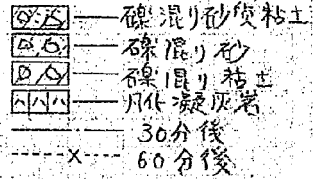 礫混り砂質粘土
礫混り砂
礫混り粘土
風化凝灰岩
30分後
60分後